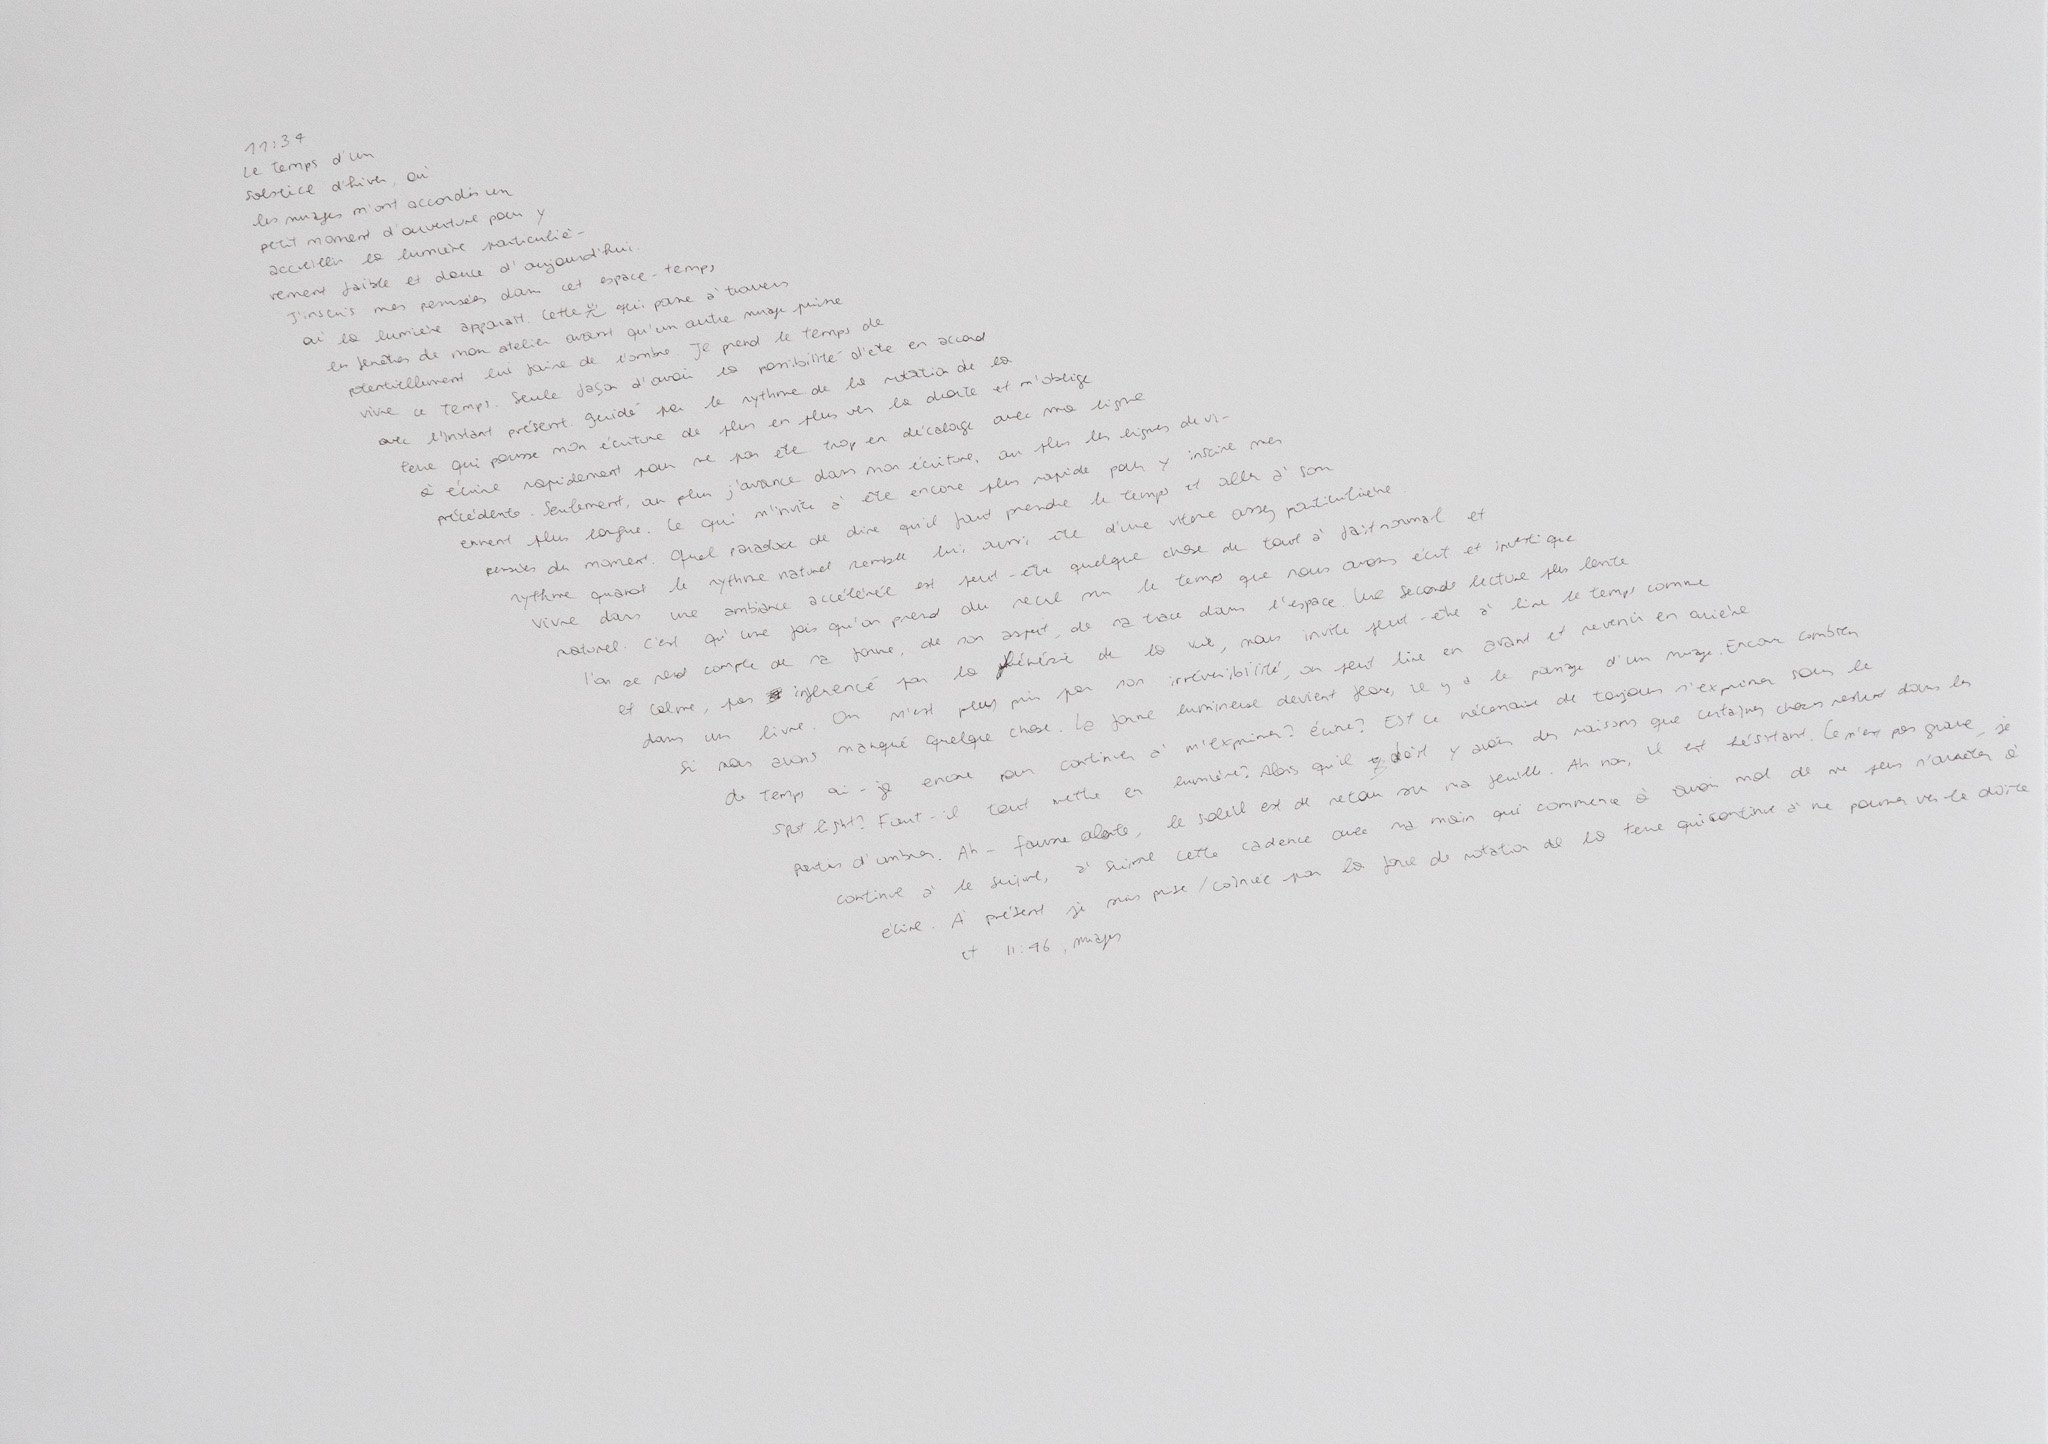 11:34
Le temps d'un
solstice d'hiver, où
les nuages m'ont accordés un
petit moment d'ouverture pour y
accueillir la lumière particuliè-
rement faible et douce d'aujourd'hui.
J'inscris mes pensées dans cet espace-temps
où la lumière apparait. Cette 光 qui passe à travers
les fenêtres de mon atelier avant qu'un autre nuage puisse
potentiellement lui faire de l'ombre. Je prend le temps de
vivre ce temps. Seule façon d'avoir la possibilité d'être en accord
avec l'instant présent. guidé par le rythme de la rotation de la
terre qui pousse mon écriture de plus en plus vers la droite et m'oblige
à écrire rapidement pour ne pas être trop en décalage avec ma ligne
précédente. Seulement, au plus j'avance dans mon écriture, au plus les lignes devi-
ennent plus longue. Ce qui m'invite à être encore plus rapide pour y inscrire mes
pensées du moment. Quel paradoxe de dire qu'il faut prendre le temps et aller à son
rythme quand le rythme naturel semble lui aussi être d'une vitesse assez particulière.
Vivre dans une ambiance accélérée est peut-être quelque chose de tout à fait normal et
naturel. C'est qu'une fois qu'on prend du recul sur le temps que nous avons écrit et investi que
l'on se rend compte de sa forme, de son aspect, de sa trace dans l'espace. Une seconde lecture plus lente
et calme, pas inferencé par la frénésie de la vie, nous invite peut-être à lire le temps comme
dans un livre. On n'est plus pris par son irréversibilité, on peut lire en avant et revenir en arrière
si nous avons manqué quelque chose. La forme lumineuse devient floue, il y a le passage d'un nuage. Encore combien
de temps ai-je encore pour continuer à m'exprimer? écrire? Est ce nécessaire de toujours s'exprimer sous le
spot light? Faut-il tout mettre en lumière? Alors qu'il doit y avoir des raisons que certaines choses restent dans les
parties d'ombres. Ah - fausse alerte, le soleil est de retour sur ma feuille. Ah non, il est hésitant. Ce n'est pas grave, je
continue à le suivre, à suivre cette cadence avec ma main qui commence à avoir mal de ne pas s'arrêter à
écrire. A présent je suis prise/coincée par la force de rotation de la terre qui continue à me pousser vers la droite
et 11:46, nuages